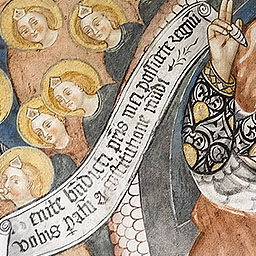 enite bndicti pris mei possidete regnu
vobis patu a cstitutione mudi